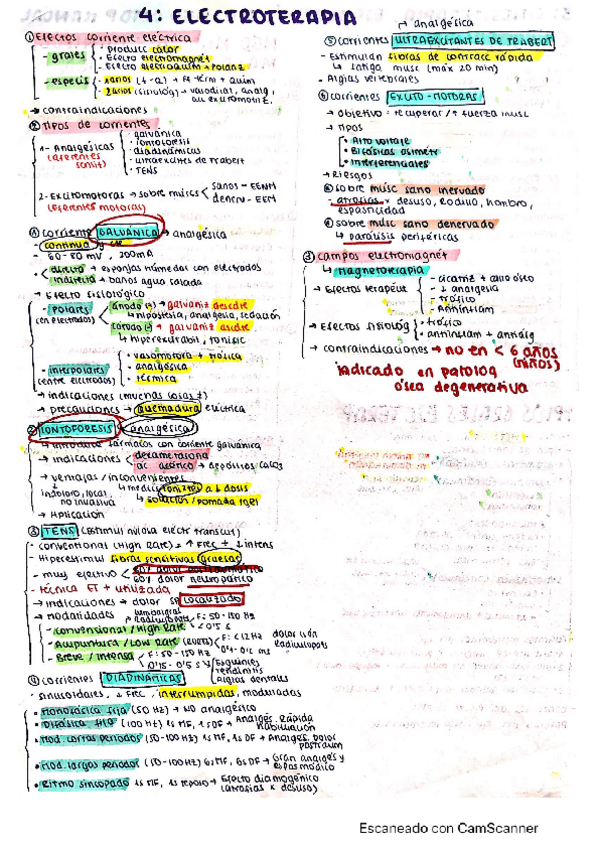 4: ELECTROTERAPIA
① Efectos corriente eléctrica
- grales
· produce calor
· Efecto electromagnét
· Efecto electroquím + Polariz
- especif
→ contraindicaciones
② Tipos de corrientes
1- Analgésicas (aferentes sensit)
· galvánica
· iontoforesis
· diadinámicas
· ultraexcites de Trabert
· TENS
2- Excitomotoras → sobre múscs
sanos - EENM
denerv - EEM
(eferentes motoras)
① corriente GALVÁNICA → analgésica
60 - 80 mV, 200mA
directa → esponjas húmedas con electrodos
indirecta → baños agua salada
→ Efecto fisiológico
- polares (en electrodos)
ánodo (+) → galvaniz descdte
↳ hipoestesia, analgesia, sedación
cátodo (-) → galvaniz ascdte
↳ hiperexcitabil, tonific
- interpolares (entre electrodos)
· vasomotora + trófica
· analgésica
· térmica
→ indicaciones (muchas cosas)
→ precauciones → quemadura eléctrica
② IONTOFORESIS (analgésica)
→ introduce fármacos con corriente galvánica
→ indicaciones
dexametasona
ác. acético → depósitos calcs
→ ventajas / inconvenientes
indoloro, local, no invasiva
solución / pomada / gel
→ Aplicación
③ TENS (estimul nviosa eléctr transcut)
- conventional (High Rate) = ↑ FREC + ↓ intens
- Hiperestimul fibras sensitivas gruesas
- muy efectivo
60% dolor neuropático
- técnica ET + utilizada
→ indicaciones → dolor localizado
→ modalidades
- convencional / High Rate
F: 50 - 150 Hz
- Acupuntura / Low Rate
- Breve / intensa
F: 50 - 150 Hz
Esguinces
tendinitis
Algias dentales
④ corrientes DIADINÁMICAS
- sinusoidales, ↓ FREC, interrumpidas, moduladas
· Monofásica fija (50 Hz) → no analgésico
· Difásica fija (100 Hz) 1s MF, 1s DF → Analges. rápida habituación
· Mod. cortos periodos (50-100 Hz) 1s MF, 1s DF → Analges. dolor postraum
· Mod. largos periodos (50-100 Hz) 6s MF, 6s DF → Gran analges y espasmódico
· Ritmo sincopado 1s MF, 1s reposo → Efecto diamogénico (atrofias x desuso)
→ analgésica
⑤ corrientes ULTRAEXCITANTES DE TRABERT
- Estimulan fibras de contracc rápida
↳ fatiga musc (máx 20 min)
- Algias vertebrales
⑥ corrientes EXCITO-MOTORAS
→ objetivo: recuperar / ↑ fuerza musc
→ Tipos
· Alto voltaje
· Bifásicas asimétr
· Interferenciales
→ Riesgos
sobre músc sano inervado
- atrofias x desuso, rodilla, hombro, espasticidad
sobre músc sano denervado
↳ parálisis periféricas
③ campos electromagnét
↳ Magnetoterapia
→ Efectos terapéut
- cicatriz + callo óseo
- ↓ analgesia
- trófico
- Antiinflam
→ Efectos fisiológ
· trófico
· antiinflam + antiálg
→ contraindicaciones → no en < 6 años (niños)
indicado en patolog
ósea degenerativa
Escaneado con CamScanner